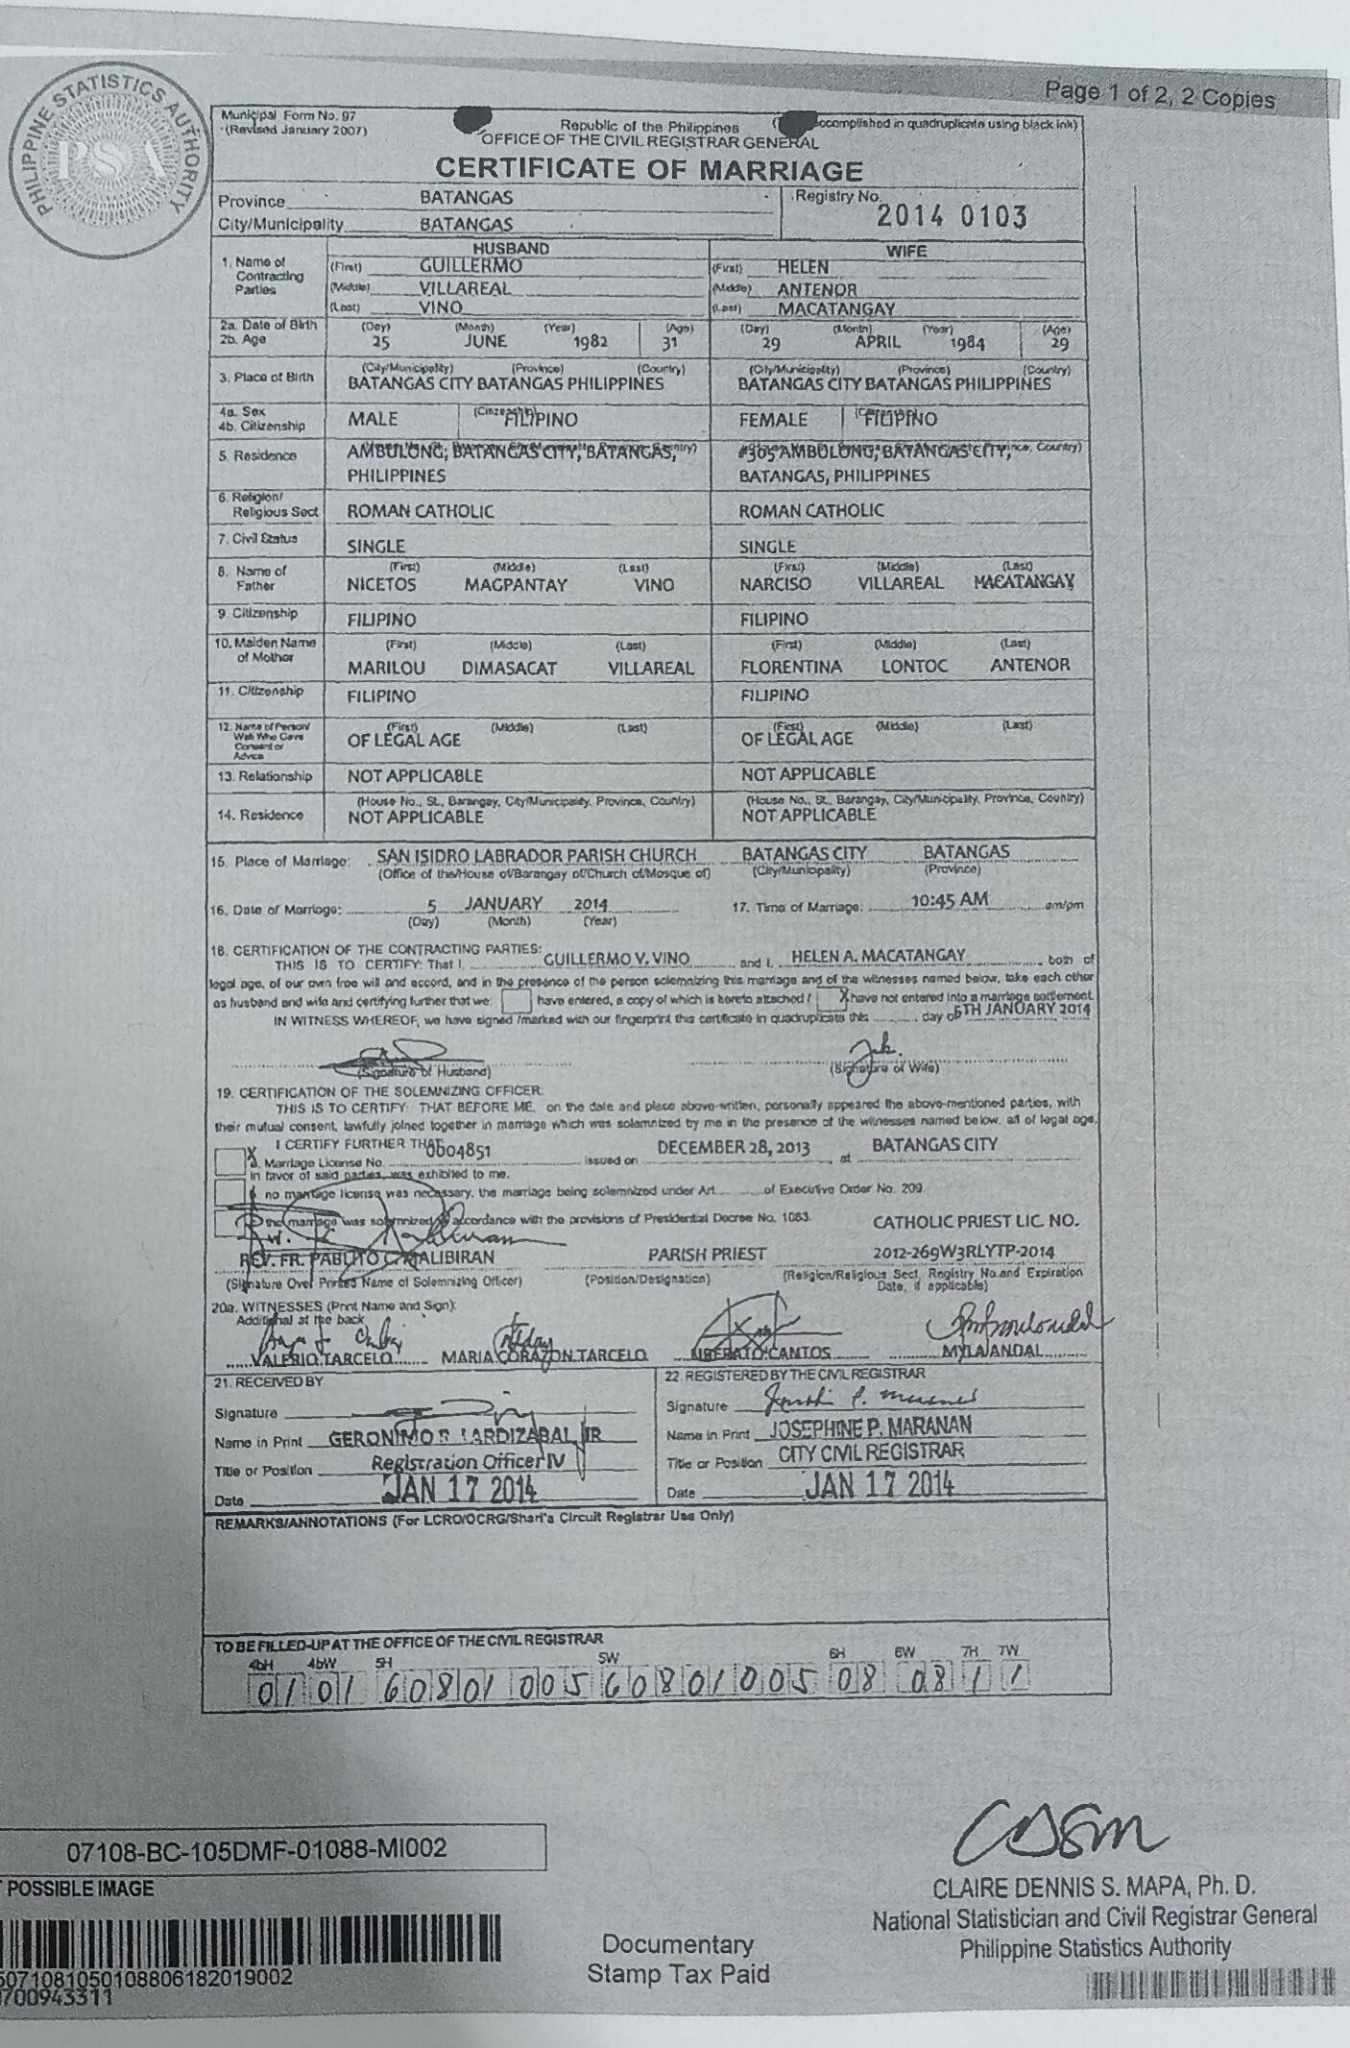 Page 1 of 2, 2 Copies
PHILIPPINE STATISTICS AUTHORITY
PSA
Municipal Form No. 97
(Revised January 2007)
Republic of the Philippines
accomplished in quadruplicate using black ink)
OFFICE OF THE CIVIL REGISTRAR GENERAL
CERTIFICATE OF MARRIAGE
Province BATANGAS
Registry No. 2014 0103
City/Municipality BATANGAS
HUSBAND WIFE
1. Name of Contracting Parties
(First) GUILLERMO (First) HELEN
(Middle) VILLAREAL (Middle) ANTENOR
(Last) VINO (Last) MACATANGAY
2a. Date of Birth
2b. Age
(Day) (Month) (Year) (Age) (Day) (Month) (Year) (Age)
25 JUNE 1982 31 29 APRIL 1984 29
3. Place of Birth
(City/Municipality) (Province) (Country) (City/Municipality) (Province) (Country)
BATANGAS CITY BATANGAS PHILIPPINES BATANGAS CITY BATANGAS PHILIPPINES
4a. Sex
4b. Citizenship
MALE (Citizenship) FILIPINO FEMALE (Citizenship) FILIPINO
5. Residence
AMBULONG, BATANGAS CITY, BATANGAS, #305 AMBULONG, BATANGAS CITY,
PHILIPPINES BATANGAS, PHILIPPINES
6. Religion/
Religious Sect
ROMAN CATHOLIC ROMAN CATHOLIC
7. Civil Status
SINGLE SINGLE
8. Name of Father
(First) (Middle) (Last) (First) (Middle) (Last)
NICETOS MAGPANTAY VINO NARCISO VILLAREAL MACATANGAY
9. Citizenship
FILIPINO FILIPINO
10. Maiden Name of Mother
(First) (Middle) (Last) (First) (Middle) (Last)
MARILOU DIMASACAT VILLAREAL FLORENTINA LONTOC ANTENOR
11. Citizenship
FILIPINO FILIPINO
12. Name of Person/ Wali Who Gave Consent or Advice
(First) (Middle) (Last) (First) (Middle) (Last)
OF LEGAL AGE OF LEGAL AGE
13. Relationship NOT APPLICABLE NOT APPLICABLE
14. Residence
(House No., St., Barangay, City/Municipality, Province, Country) (House No., St., Barangay, City/Municipality, Province, Country)
NOT APPLICABLE NOT APPLICABLE
15. Place of Marriage: SAN ISIDRO LABRADOR PARISH CHURCH BATANGAS CITY BATANGAS
(Office of the/House of/Barangay of/Church of/Mosque of) (City/Municipality) (Province)
16. Date of Marriage: 5 JANUARY 2014 17. Time of Marriage: 10:45 AM am/pm
(Day) (Month) (Year)
18. CERTIFICATION OF THE CONTRACTING PARTIES:
THIS IS TO CERTIFY: That I, GUILLERMO V. VINO and I, HELEN A. MACATANGAY both of
legal age, of our own free will and accord, and in the presence of the person solemnizing this marriage and of the witnesses named below, take each other
as husband and wife and certifying further that we: have entered, a copy of which is hereto attached / X have not entered into a marriage settlement.
IN WITNESS WHEREOF, we have signed /marked with our fingerprint this certificate in quadruplicate this day of 5TH JANUARY 2014
(Signature of Husband) (Signature of Wife)
19. CERTIFICATION OF THE SOLEMNIZING OFFICER:
THIS IS TO CERTIFY: THAT BEFORE ME, on the date and place above-written, personally appeared the above-mentioned parties, with
their mutual consent, lawfully joined together in marriage which was solemnized by me in the presence of the witnesses named below, all of legal age.
I CERTIFY FURTHER THAT:
X a. Marriage License No. 0004851 issued on DECEMBER 28, 2013 at BATANGAS CITY
in favor of said parties, was exhibited to me.
no marriage license was necessary, the marriage being solemnized under Art. of Executive Order No. 209.
the marriage was solemnized in accordance with the provisions of Presidential Decree No. 1083.
CATHOLIC PRIEST LIC. NO.
REV. FR. PABLITO C. MALIBIRAN PARISH PRIEST 2012-269W3RLYTP-2014
(Signature Over Printed Name of Solemnizing Officer) (Position/Designation) (Religion/Religious Sect, Registry No.and Expiration
Date, if applicable)
20a. WITNESSES (Print Name and Sign):
Additional at the back
VALERIO TARCELO MARIA CORAZON TARCELO LIBERATO CANTOS MYLA ANDAL
21. RECEIVED BY 22. REGISTERED BY THE CIVIL REGISTRAR
Signature Signature
Name in Print GERONIMO B LARDIZABAL JR Name in Print JOSEPHINE P. MARANAN
Title or Position Registration Officer IV Title or Position CITY CIVIL REGISTRAR
Date JAN 17 2014 Date JAN 17 2014
REMARKS/ANNOTATIONS (For LCRO/OCRG/Shari'a Circuit Registrar Use Only)
TO BE FILLED-UP AT THE OFFICE OF THE CIVIL REGISTRAR
4bH 4bW 5H 5W 6H 6W 7H 7W
01 01 60801005 60801005 08 08 1 1
07108-BC-105DMF-01088-MI002
POSSIBLE IMAGE
5071081050108806182019002
700943311
Documentary
Stamp Tax Paid
CLAIRE DENNIS S. MAPA, Ph. D.
National Statistician and Civil Registrar General
Philippine Statistics Authority